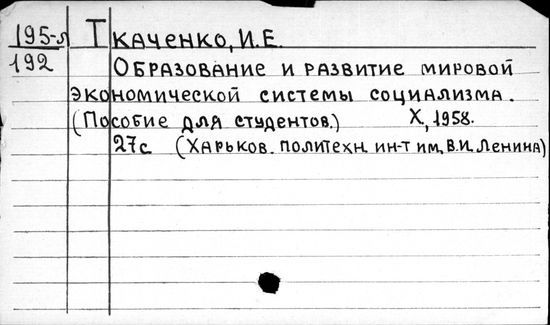 195-л Ткаченко, И.Е.
192 Образование и развитие мировой
экономической системы социализма.
(Пособие для студентов.) Х, 1958.
27с (Харьков. политехн. ин-т им. В.И. Ленина)